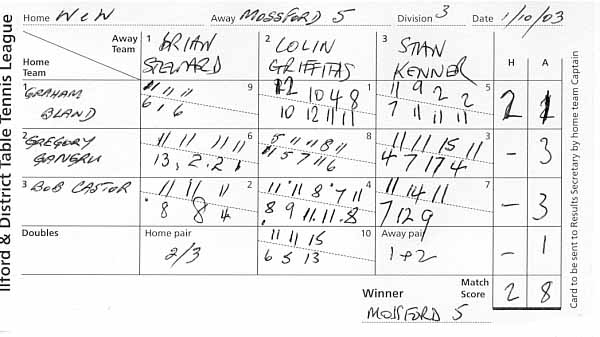 Home WCW Away MOSSFORD 5 Division 3 Date 1/10/03
Ilford & District Table Tennis League
Away Team
Home Team
1 BRIAN STEWARD
2 COLIN GRIFFITHS
3 STAN KENNER
H A
1 GRAHAM BLAND
9
11 11 11
6 1 6
1
12 10 4 8
10 12 11 11
5
11 9 2 2
7 11 11 11
2 1
2 GREGORY
6
11 11 11 11
13, 2. 2.
8
5 11 11 8 11
11 5 7 11 6
3
11 11 15 11
4 7 17 4
- 3
3 BOB CASTOR
2
11 11 11
8 8 4
4
11 11 8 7 11
8 9 11 11 8
7
11 14 11
7 12 9
- 3
Doubles
Home pair
2/3
10
11 11 15
6 5 13
Away pair
1+2
- 1
Winner
MOSSFORD 5
Match Score
2 8
Card to be sent to Results Secretary by home team Captain